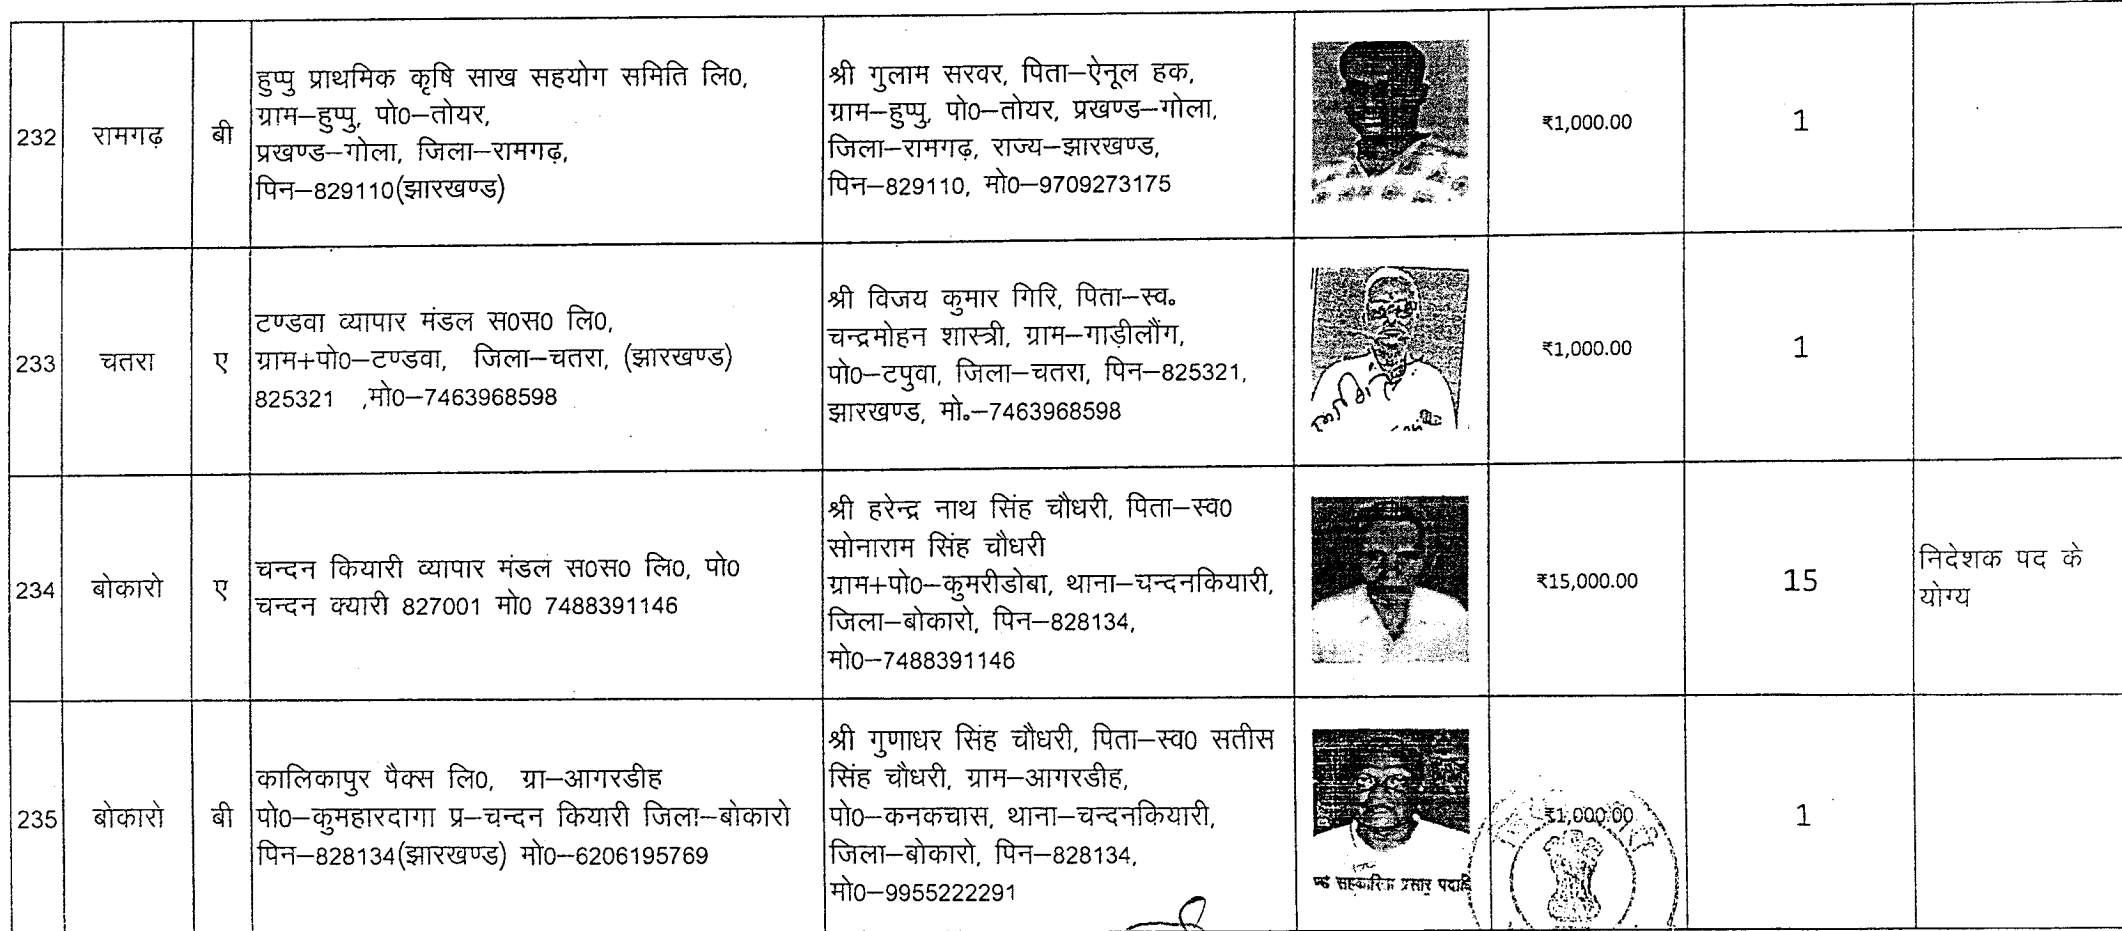 232
रामगढ़
बी
हुप्पु प्राथमिक कृषि साख सहयोग समिति लि0,
ग्राम–हुप्पु, पो0–तोयर,
प्रखण्ड–गोला, जिला–रामगढ़,
पिन–829110(झारखण्ड)
श्री गुलाम सरवर, पिता–ऐनूल हक,
ग्राम–हुप्पु, पो0–तोयर, प्रखण्ड–गोला,
जिला–रामगढ़, राज्य–झारखण्ड,
पिन–829110, मो0–9709273175
₹1,000.00
1
233
चतरा
ए
टण्डवा व्यापार मंडल स0स0 लि0,
ग्राम+पो0–टण्डवा, जिला–चतरा, (झारखण्ड)
825321 ,मो0–7463968598
श्री विजय कुमार गिरि, पिता–स्व॰
चन्द्रमोहन शास्त्री, ग्राम–गाड़ीलौंग,
पो0–टपुवा, जिला–चतरा, पिन–825321,
झारखण्ड, मो॰–7463968598
₹1,000.00
1
234
बोकारो
ए
चन्दन कियारी व्यापार मंडल स0स0 लि0, पो0
चन्दन क्यारी 827001 मो0 7488391146
श्री हरेन्द्र नाथ सिंह चौधरी, पिता–स्व0
सोनाराम सिंह चौधरी
ग्राम+पो0–कुमरीडोबा, थाना–चन्दनकियारी,
जिला–बोकारो, पिन–828134,
मो0–7488391146
₹15,000.00
15
निदेशक पद के
योग्य
235
बोकारो
बी
कालिकापुर पैक्स लि0, ग्रा–आगरडीह
पो0–कुमहारदागा प्र–चन्दन कियारी जिला–बोकारो
पिन–828134(झारखण्ड) मो0–6206195769
श्री गुणाधर सिंह चौधरी, पिता–स्व0 सतीस
सिंह चौधरी, ग्राम–आगरडीह,
पो0–कनकचास, थाना–चन्दनकियारी,
जिला–बोकारो, पिन–828134,
मो0–9955222291
सहकारिता प्रसार
₹1,000.00
1